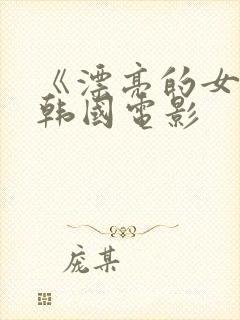 《漂亮的女
韩國電影
庞某